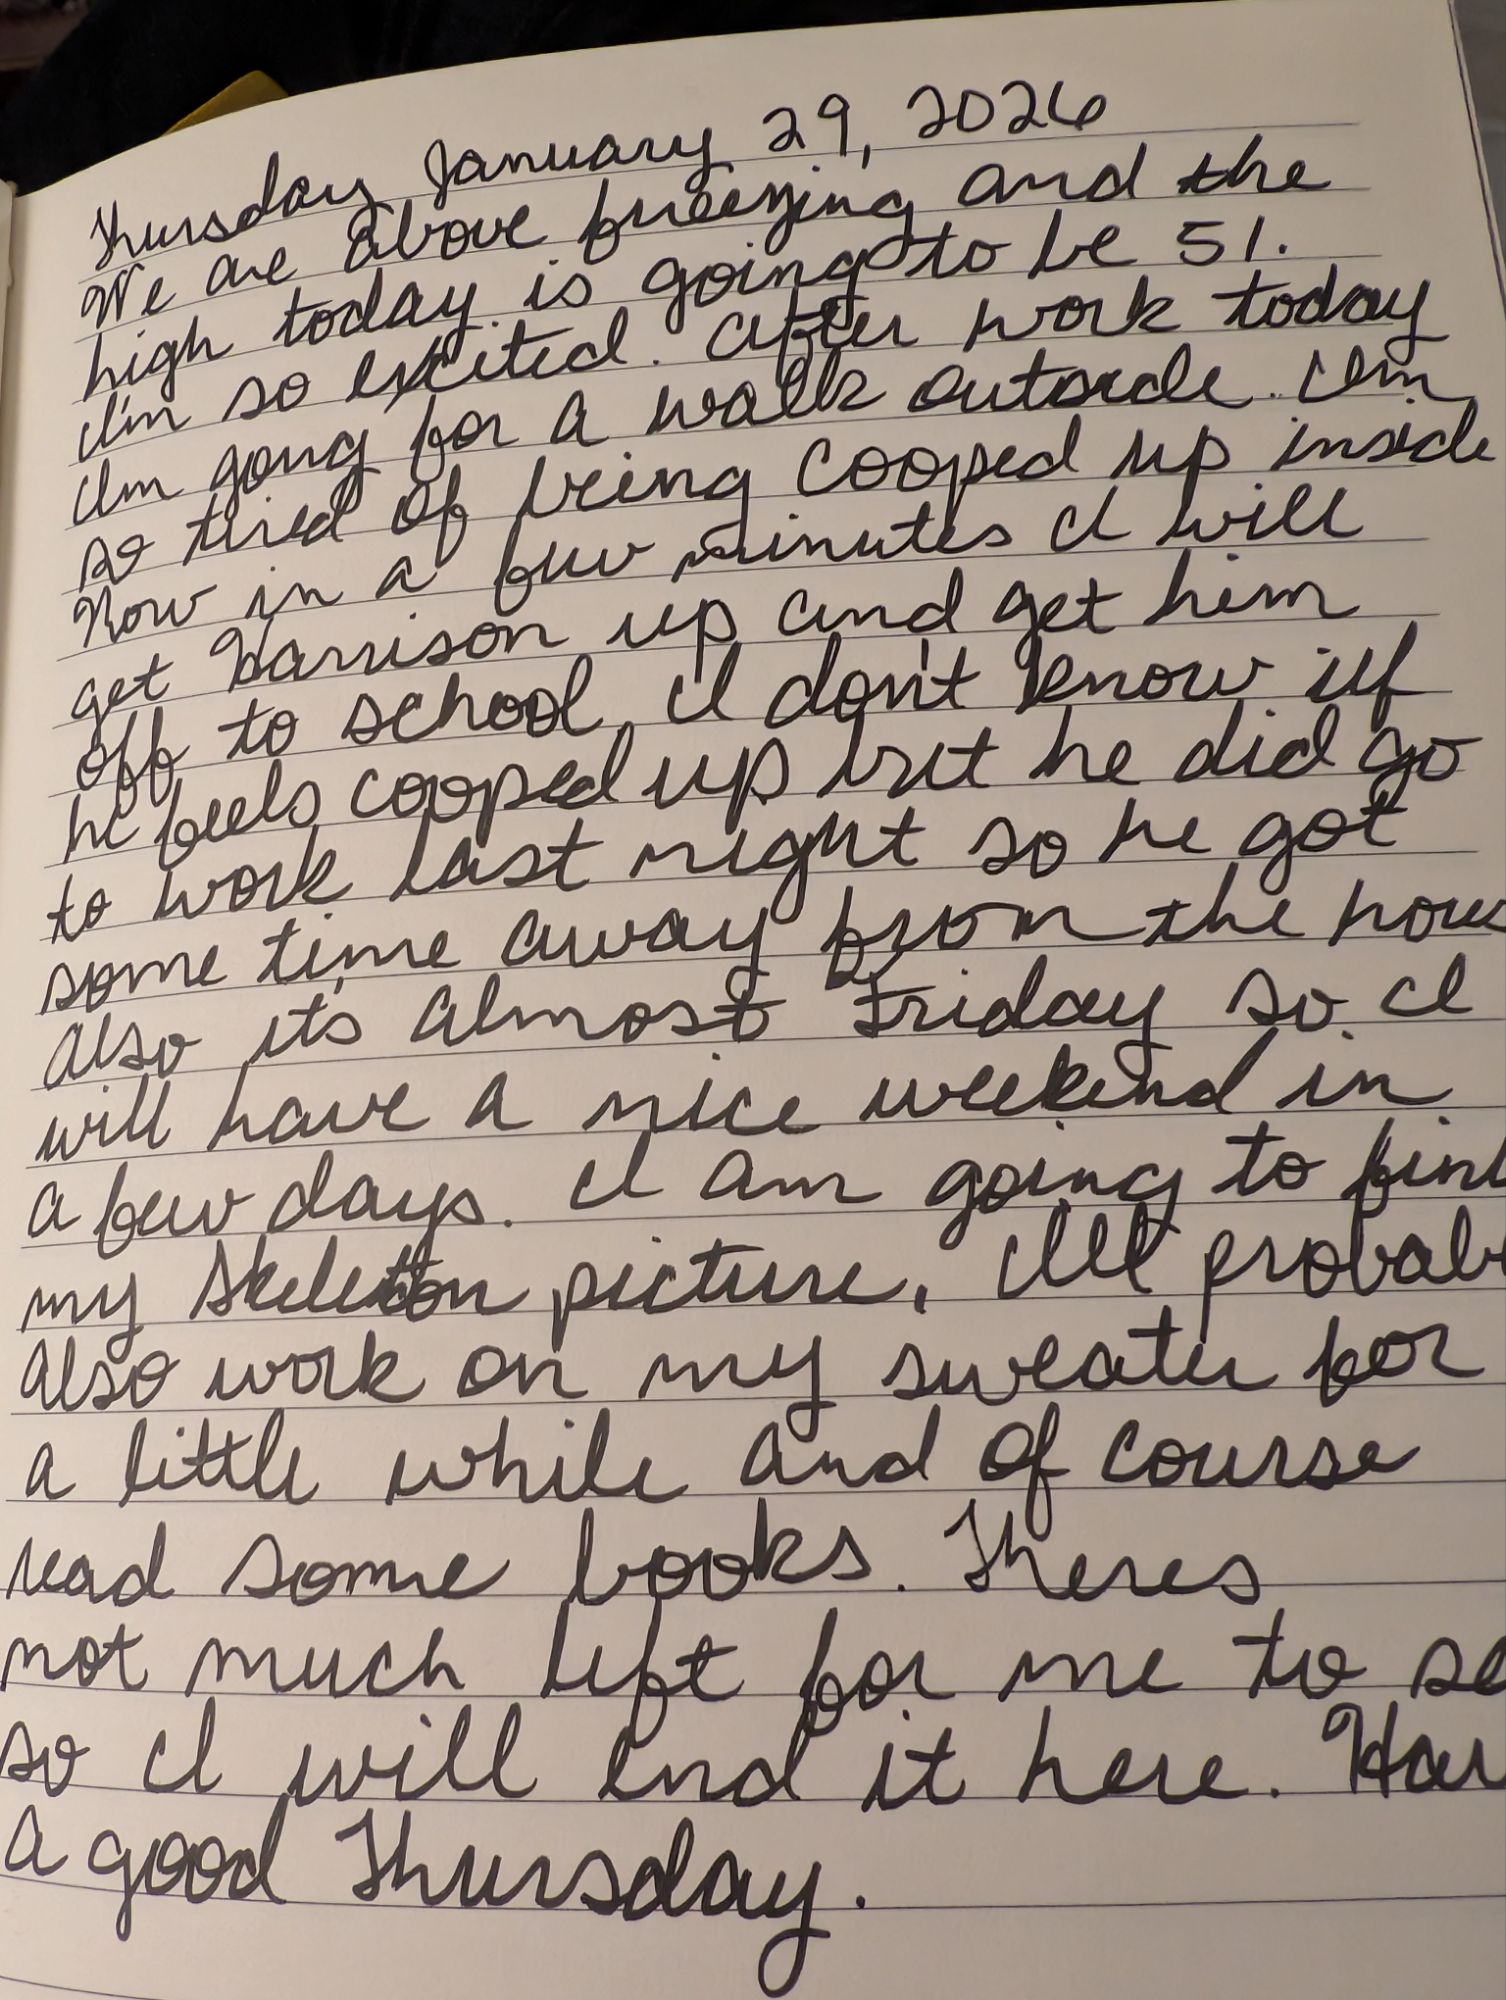 Thursday January 29, 2026
We are above freezing and the
high today is going to be 51.
I'm so excited. After work today
I'm going for a walk outside. I'm
so tired of being cooped up inside
Now in a few minutes I will
get Harrison up and get him
off to school, I don't know if
he feels cooped up but he did go
to work last night so he got
some time away from the hous
Also it's almost Friday so I
will have a nice weekend in
a few days. I am going to fin
my skeleton picture, I'll probab
also work on my sweater for
a little while and of course
read some books. Theres
not much left for me to sa
so I will end it here. Hav
a good Thursday.